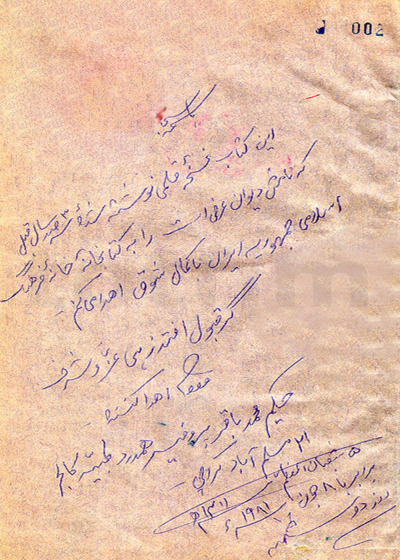 002
باسمه
این کتاب نسخهٔ قلمی نوشته شدهٔ ۳ صد سال قبل
که نامش دیوان عرفی است را به کتابخانهٔ خانهٔ فرهنگ
اسلامی جمهوریه ایران با کمال شوق اهدا می‌کنم -
گر قبول افتد زهی عز و شرف
اهدا کننده
حکیم محمد باقر پروفیسر همدرد طبیه کالج
۲۱ مسلم آباد کراچی -
۵ شعبان المعظم ۱۴۰۱ھ
برابر با ۸ جون ۱۹۸۱ء
روز دوشنبه